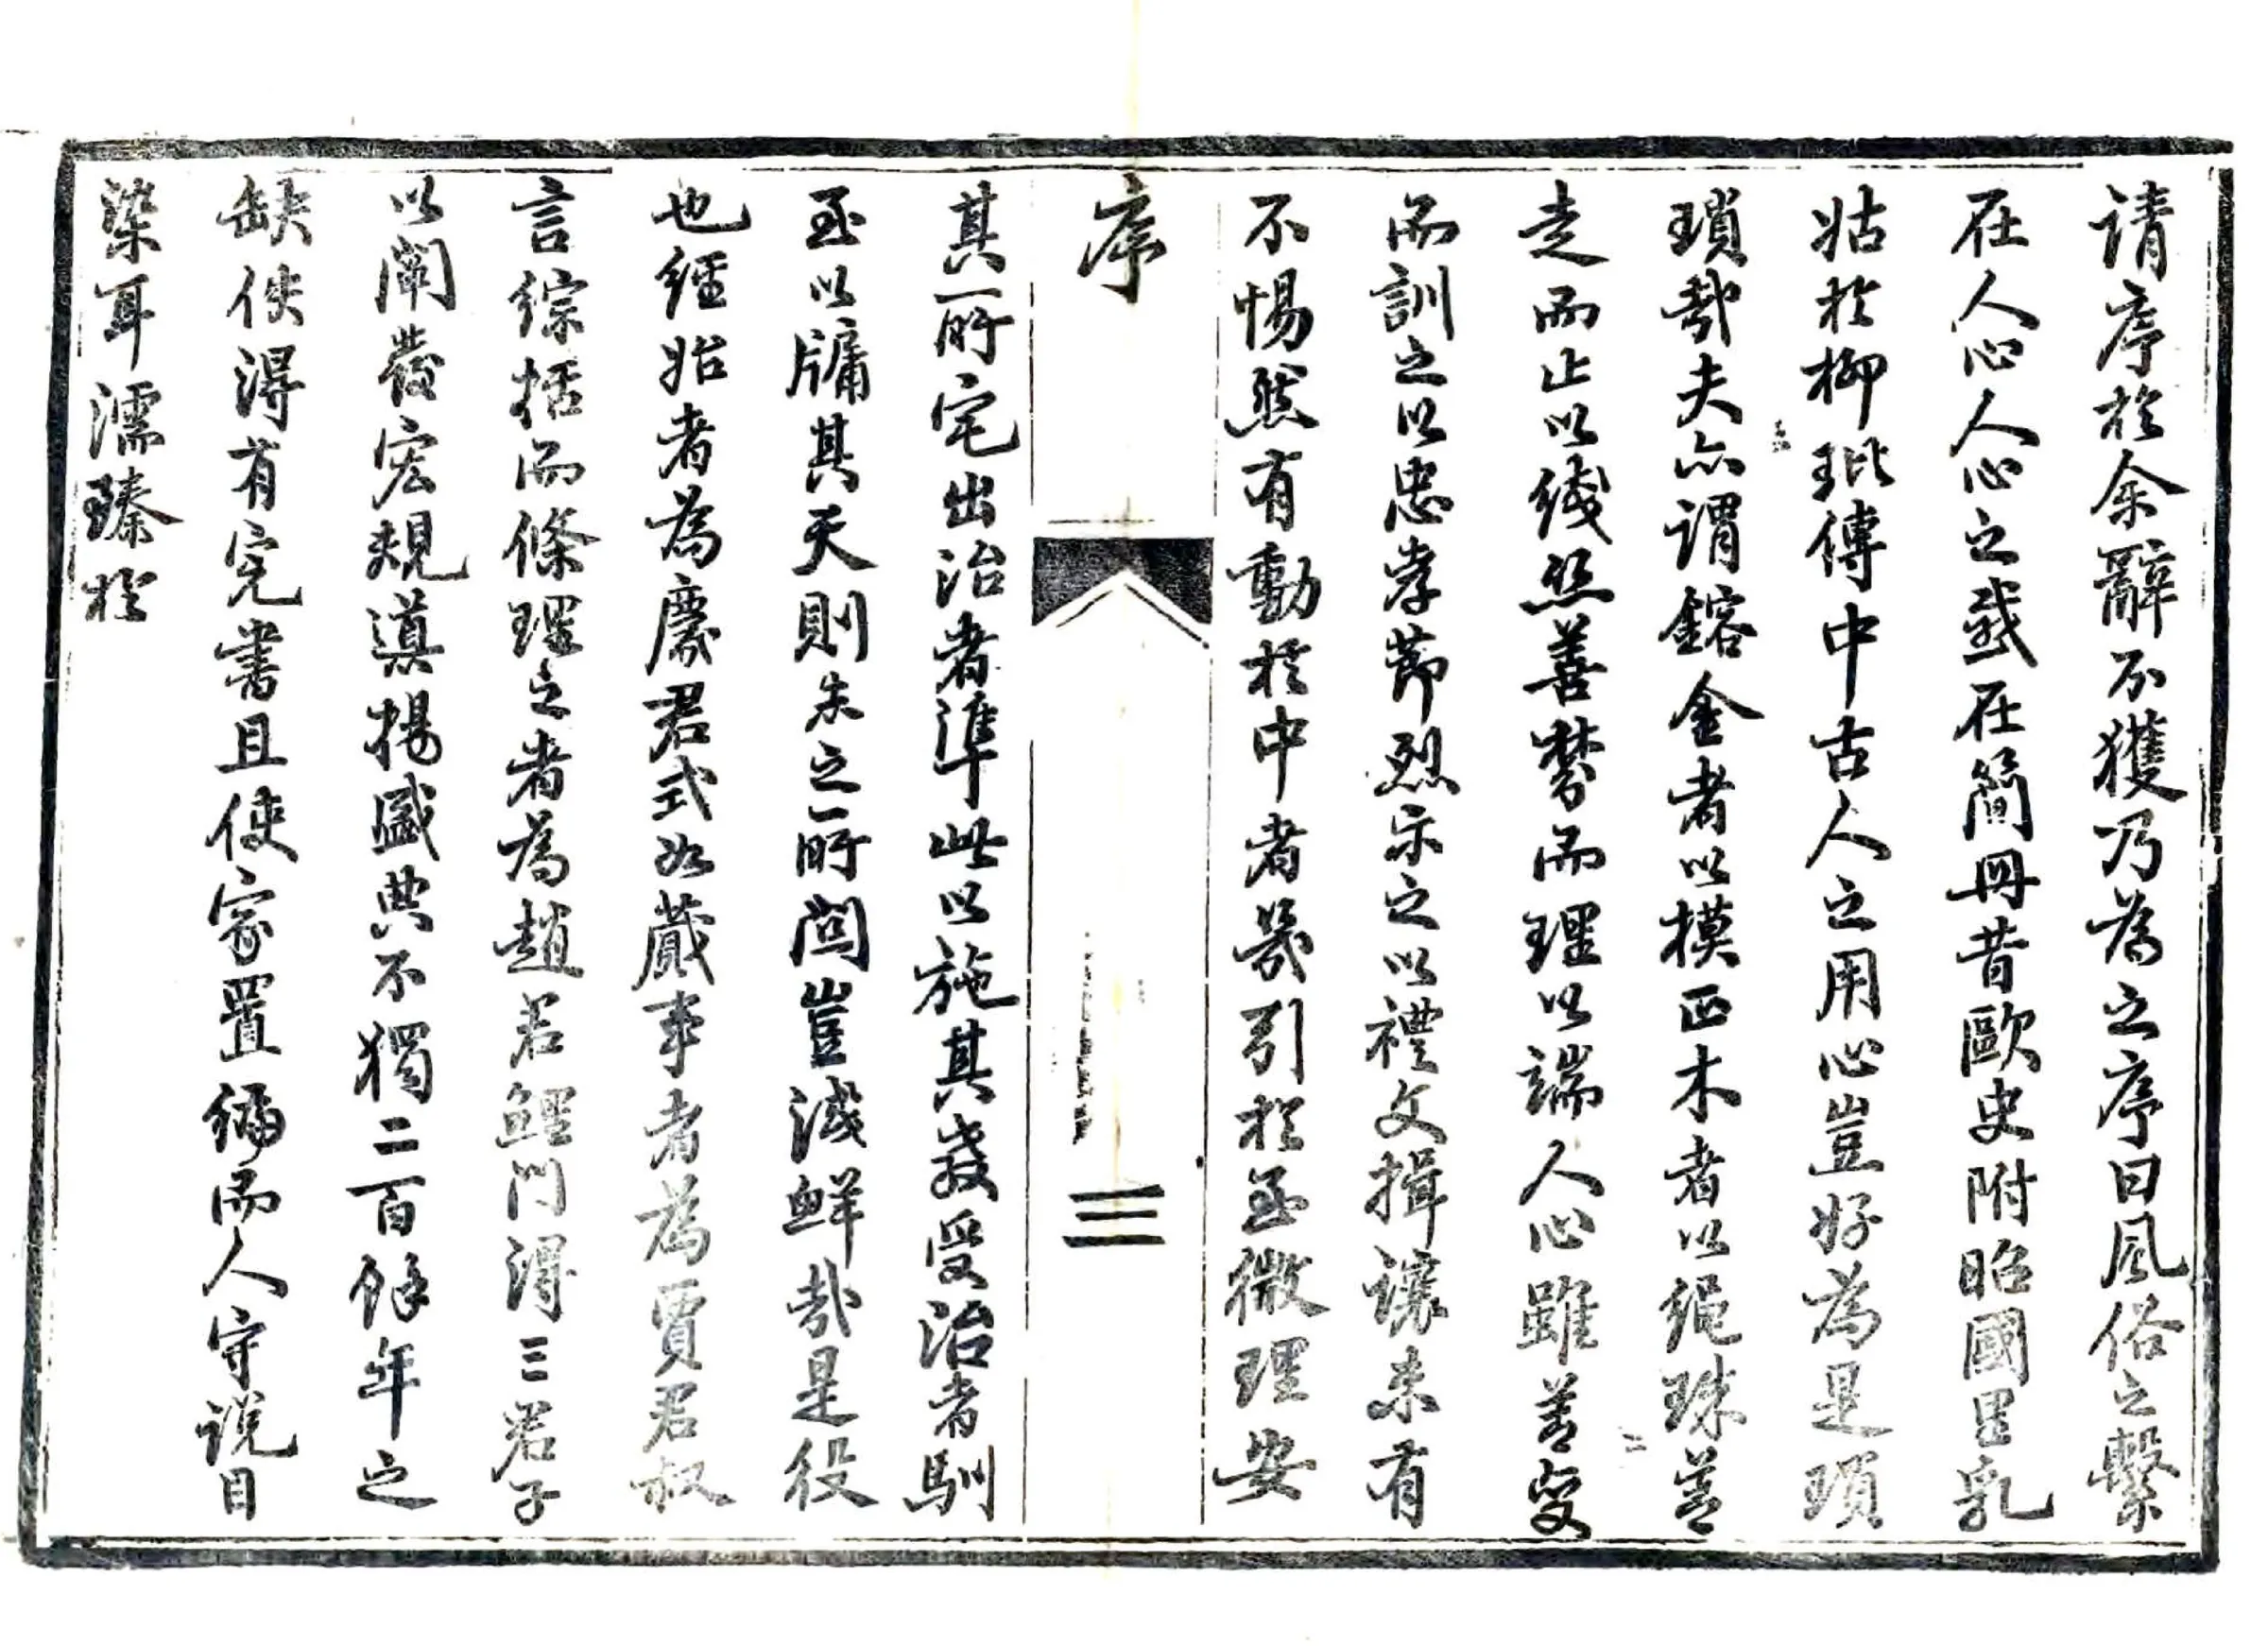 請序於余辭不獲乃為之序曰風俗之繫
在人心人心之感在簡冊昔歐史附昭國里乳
姑於柳玭傳中古人之用心豈好為是瑣
瑣哉夫亦謂鎔金者以模正木者以繩珠善
走而止以綫絲善棼而理以端人心雖善變
而訓之以忠孝節烈示之以禮文揖讓未有
不惕然有動於中者幾引於至微理安
序
三
其所宅出治者準此以施其教受治者馴
至以牖其天則朱之所關豈淺鮮哉是役
也經始者為慶君式如蕆事者為賈君叔
言綜括而條理之者為趙君鯉門得三君子
以闡發宏規揚盛典不獨二百餘年之
缺佚得有完書且使家置編而人守說目
染耳濡臻於